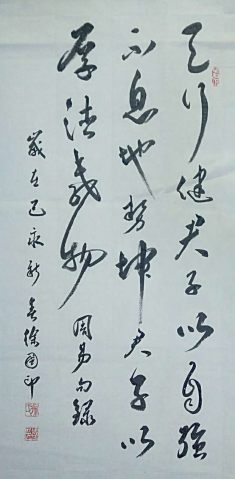 天行健君子以自强
不息地势坤君子以
厚德载物 周易句录
岁在己亥新春徐国印